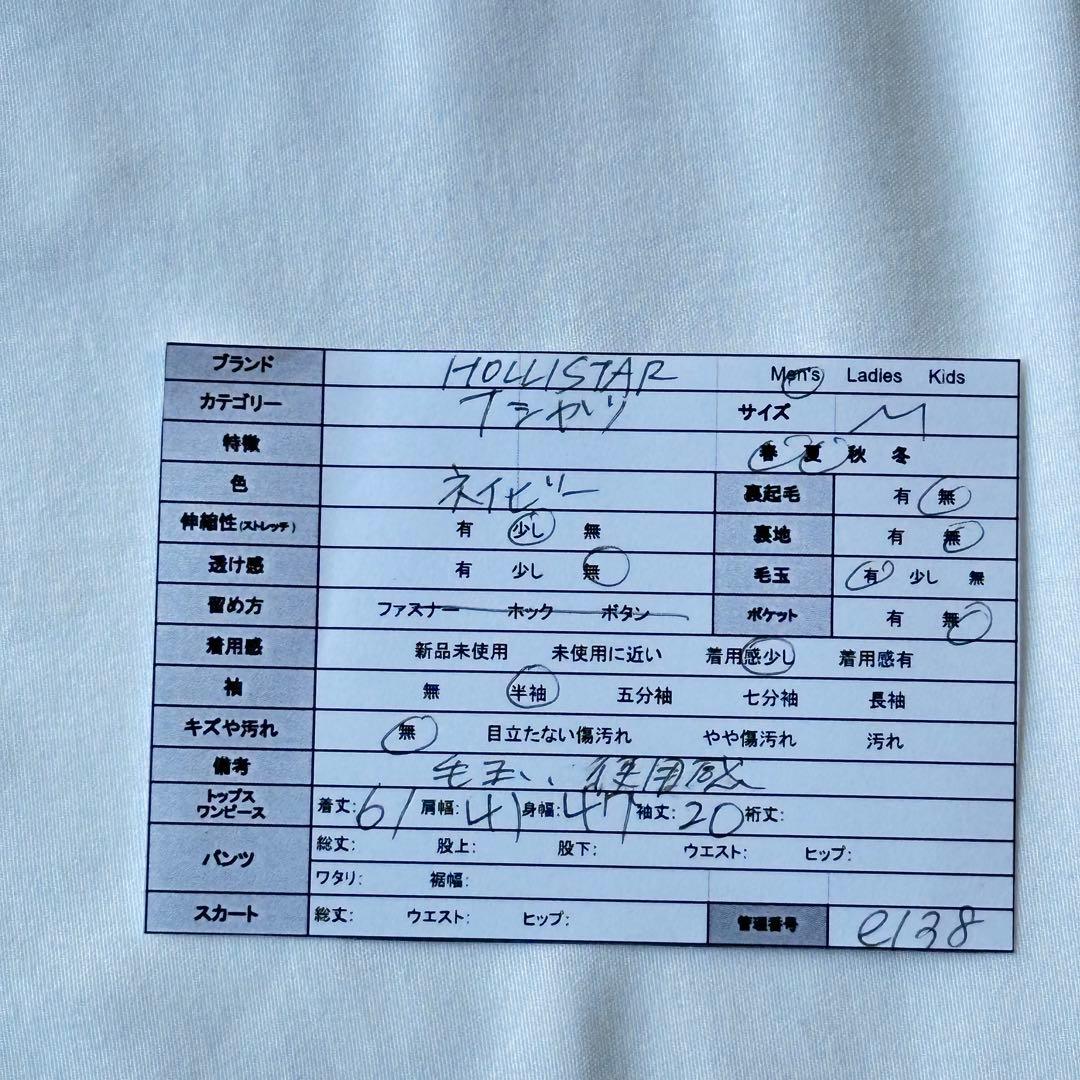 ブランド HOLLISTAR Men's Ladies Kids
カテゴリー Tシャツ サイズ M
特徴 春 夏 秋 冬
色 ネイビー 裏起毛 有 無
伸縮性(ストレッチ) 有 少し 無 裏地 有 無
透け感 有 少し 無 毛玉 有 少し 無
留め方 ファスナー ホック ボタン ポケット 有 無
着用感 新品未使用 未使用に近い 着用感少し 着用感有
袖 無 半袖 五分袖 七分袖 長袖
キズや汚れ 無 目立たない傷汚れ やや傷汚れ 汚れ
備考 毛玉、使用感
トップス
ワンピース 着丈:61 肩幅:41 身幅:47 袖丈:20 裄丈:
パンツ 総丈: 股上: 股下: ウエスト: ヒップ:
ワタリ: 裾幅:
スカート 総丈: ウエスト: ヒップ: 管理番号 e138